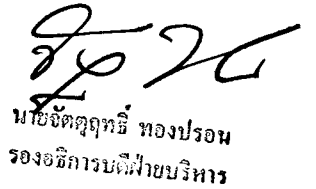 นายจัตตุฤทธิ์ ทองปรอน
รองอธิการบดีฝ่ายบริหาร